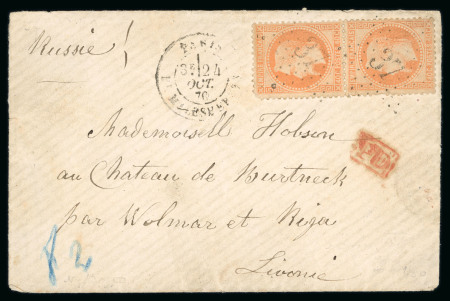 Russie!
PARIS
3E 24
OCT.
70
37 37
Mademoiselle Hobson
PD
au Chateau de Burtneck
par Wolmar et Riga
Livonie
2